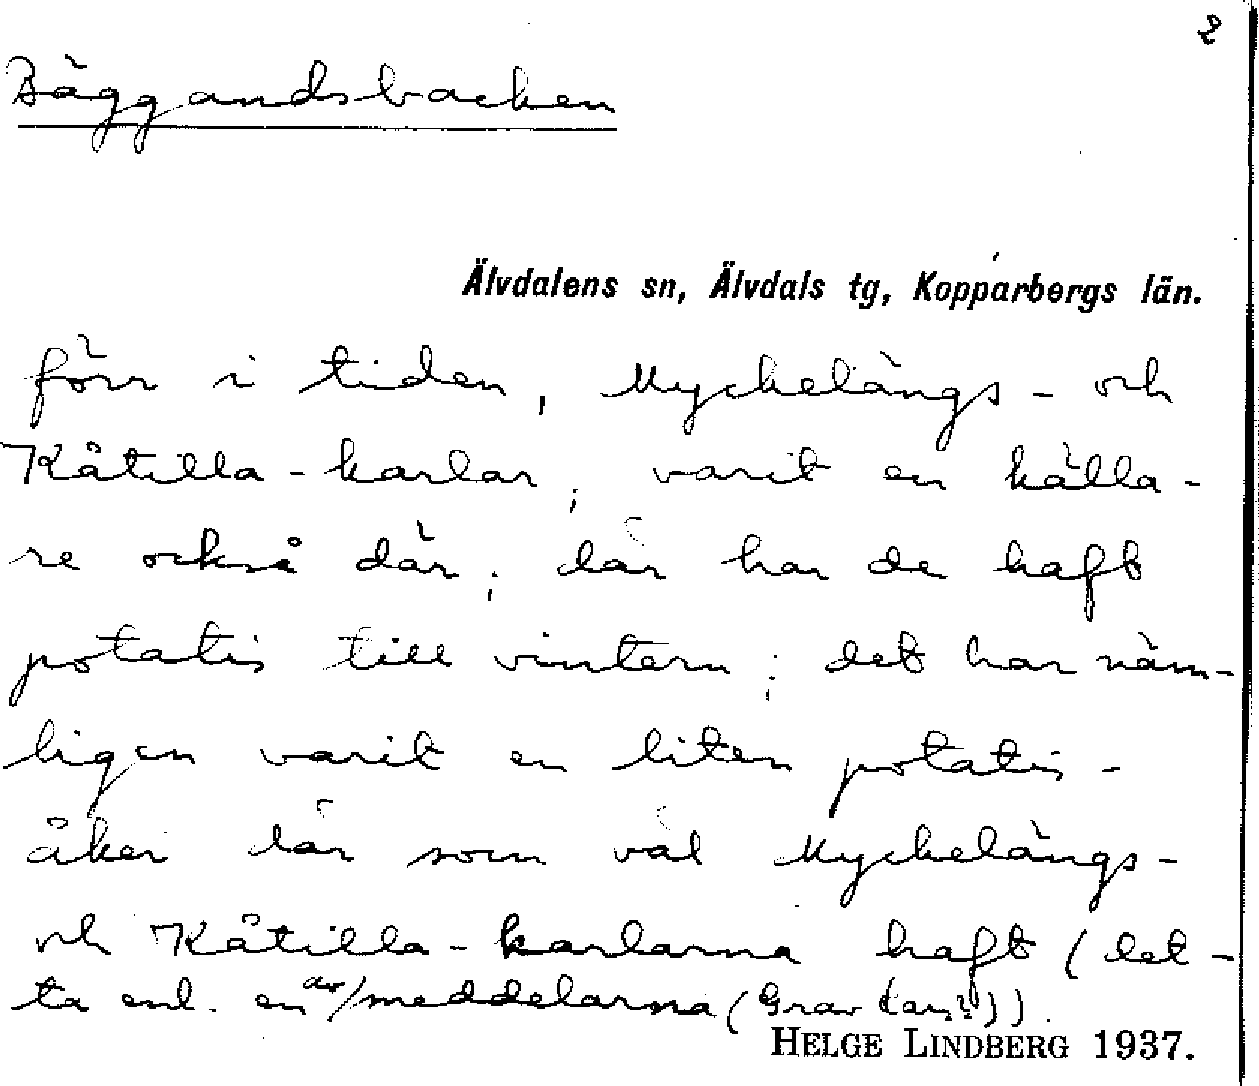 2
Bäggandsbacken
Älvdalens sn, Älvdals tg, Kopparbergs län.
förr i tiden, Myckelängs- och
Kåtilla-karlar; varit en källa-
re också där; där har de haft
potatis till vintern; det har näm-
ligen varit en liten potatis-
åker där som väl Myckelängs-
och Kåtilla-karlarna haft (det-
ta enl. en av meddelarna (Grav
HELGE LINDBERG 1937.